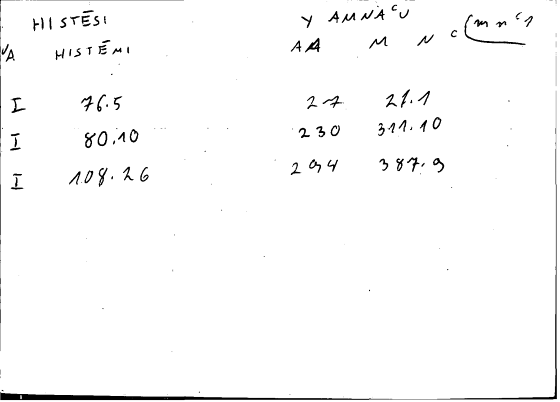 HISTĒSI Y AMNAᶜU
VA HISTĒMI AA M N C (mnᶜ1
I 76.5 27 21.1
I 80.10 230 311.10
I 108.26 294 387.9